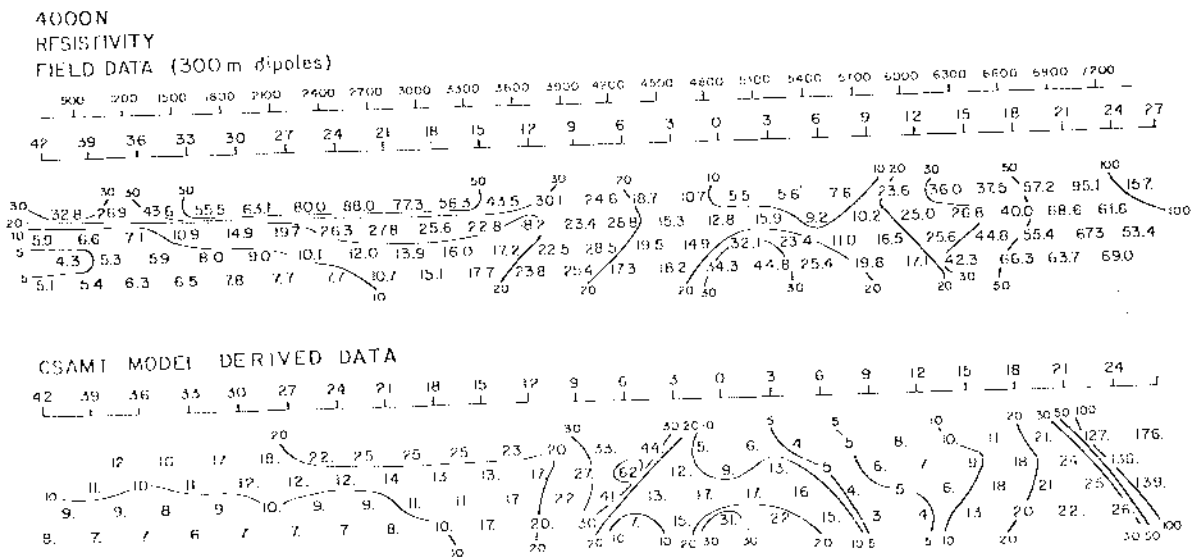 4000N
RESISTIVITY
FIELD DATA (300 m dipoles)
900 1200 1500 1800 2100 2400 2700 3000 3300 3600 3900 4200 4500 4800 5100 5400 5700 6000 6300 6600 6900 7200
42 39 36 33 30 27 24 21 18 15 12 9 6 3 0 3 6 9 12 15 18 21 24 27
30 30 50 50 30 20 10 10 20 30 50 100
30 32.8 26.9 43.6 55.5 63.1 80.0 88.0 77.3 56.3 43.5 30.1 24.6 18.7 10.7 5.5 5.6 7.6 23.6 36.0 37.5 57.2 95.1 157.
20 10 5.0 6.6 7.1 10.9 14.9 19.7 26.3 27.8 25.6 22.8 23.4 26.8 15.3 12.8 15.9 9.2 10.2 25.0 26.8 40.0 68.6 61.6 100
5 4.3 5.3 5.9 8.0 9.0 10.1 12.0 13.9 16.0 17.2 22.5 28.5 19.5 14.9 32.1 23.4 11.0 16.5 25.6 44.8 55.4 67.3 53.4
5 5.1 5.4 6.3 6.5 7.8 7.7 7.7 10.7 15.1 17.7 23.8 25.4 17.3 18.2 34.3 44.8 25.4 19.8 17.1 42.3 66.3 63.7 69.0
10 20 20 20 30 30 20 20 30 50
CSAMT MODEL DERIVED DATA
42 39 36 33 30 27 24 21 18 15 12 9 6 3 0 3 6 9 12 15 18 21 24
20 30 30 20 10 5 5 10 20 30 50 100
12 16 17. 18. 22. 25 25 25 23 20. 33. 44. 5. 6. 4 5 8. 10. 11 21. 127. 176.
10 11. 10 11. 12. 12. 12. 14 13 13. 17. 27. 62 12. 9. 13. 5 6. 7 9 18 24 138.
9. 9. 8 9 10. 9. 9. 11. 11 17 22 41 13. 17. 17. 16 4. 5 6. 18 21 25 139.
8. 7. 7 6 7. 7. 7 8. 10. 17. 20. 30 7. 15. 31. 22 15. 3 4 13 20 22. 26.
10 20 20 10 10 20 30 30 20 10 5 5 10 20 30 50 100